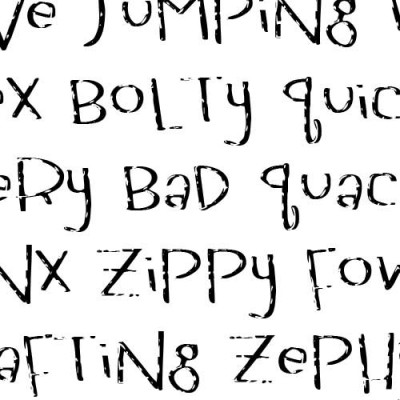 ve JuMPiNg
eX BoLTy quic
eRy BaD quac
NX ZiPPy Fow
aFTiNg ZePH